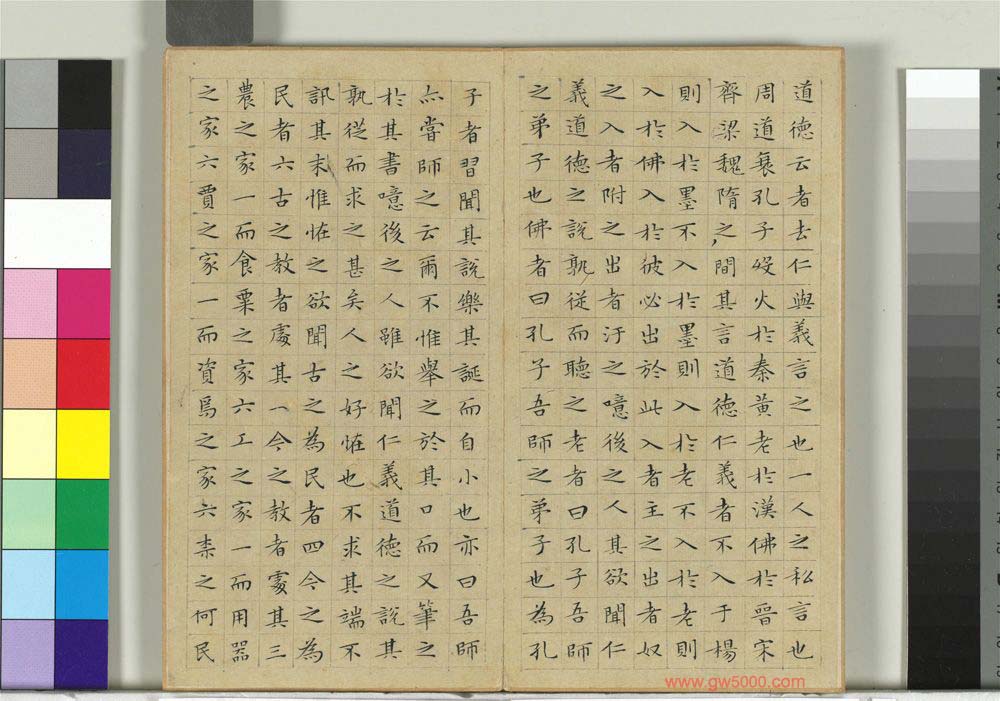 道德云者去仁與義言之也一人之私言也
周道衰孔子歿火於秦黃老於漢佛於晉宋
齊梁魏隋之間其言道德仁義者不入于楊
則入於墨不入於墨則入於老不入於老則
入於佛入於彼必出於此入者主之出者奴
之入者附之出者汙之噫後之人其欲聞仁
義道德之說孰從而聽之老者曰孔子吾師
之弟子也佛者曰孔子吾師之弟子也為孔
子者習聞其說樂其誕而自小也亦曰吾師
亦嘗師之云爾不惟舉之於其口而又筆之
於其書噫後之人雖欲聞仁義道德之說其
孰從而求之甚矣人之好恠也不求其端不
訊其末惟恠之欲聞古之為民者四今之為
民者六古之教者處其一今之教者處其三
農之家一而食粟之家六工之家一而用器
之家六賈之家一而資焉之家六柰之何民
www.gw5000.com